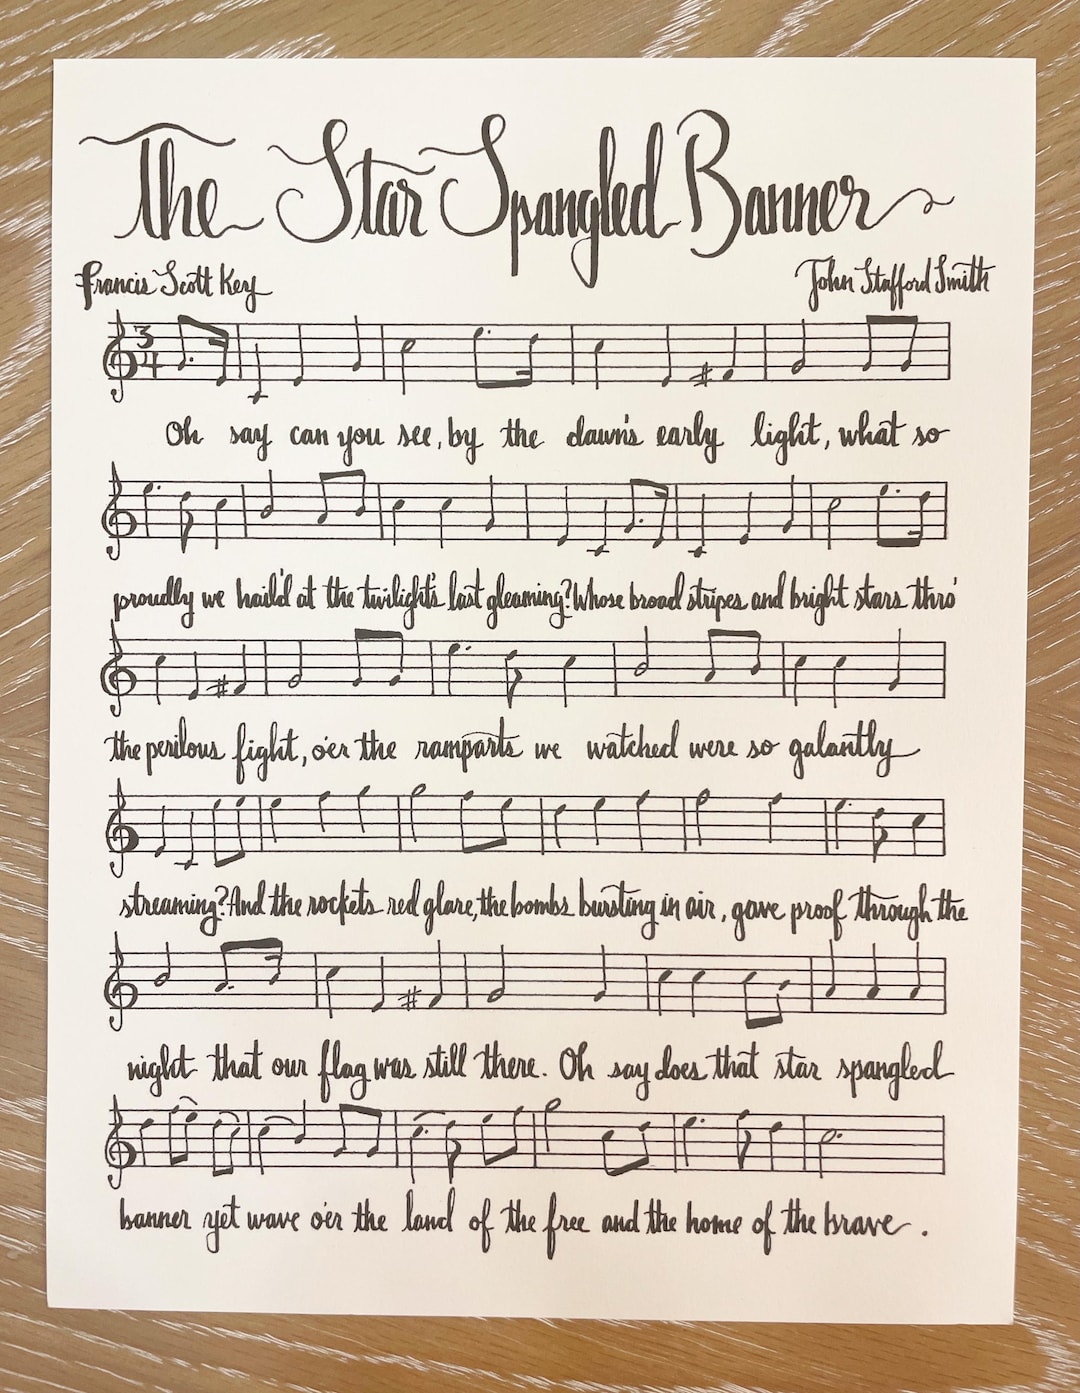 The Star Spangled Banner
Francis Scott Key John Stafford Smith
3
4
Oh say can you see, by the dawn's early light, what so
proudly we hail'd at the twilight's last gleaming? Whose broad stripes and bright stars thro'
the perilous fight, o'er the ramparts we watched were so galantly
streaming? And the rockets red glare, the bombs bursting in air, gave proof through the
night that our flag was still there. Oh say does that star spangled
banner yet wave o'er the land of the free and the home of the brave.